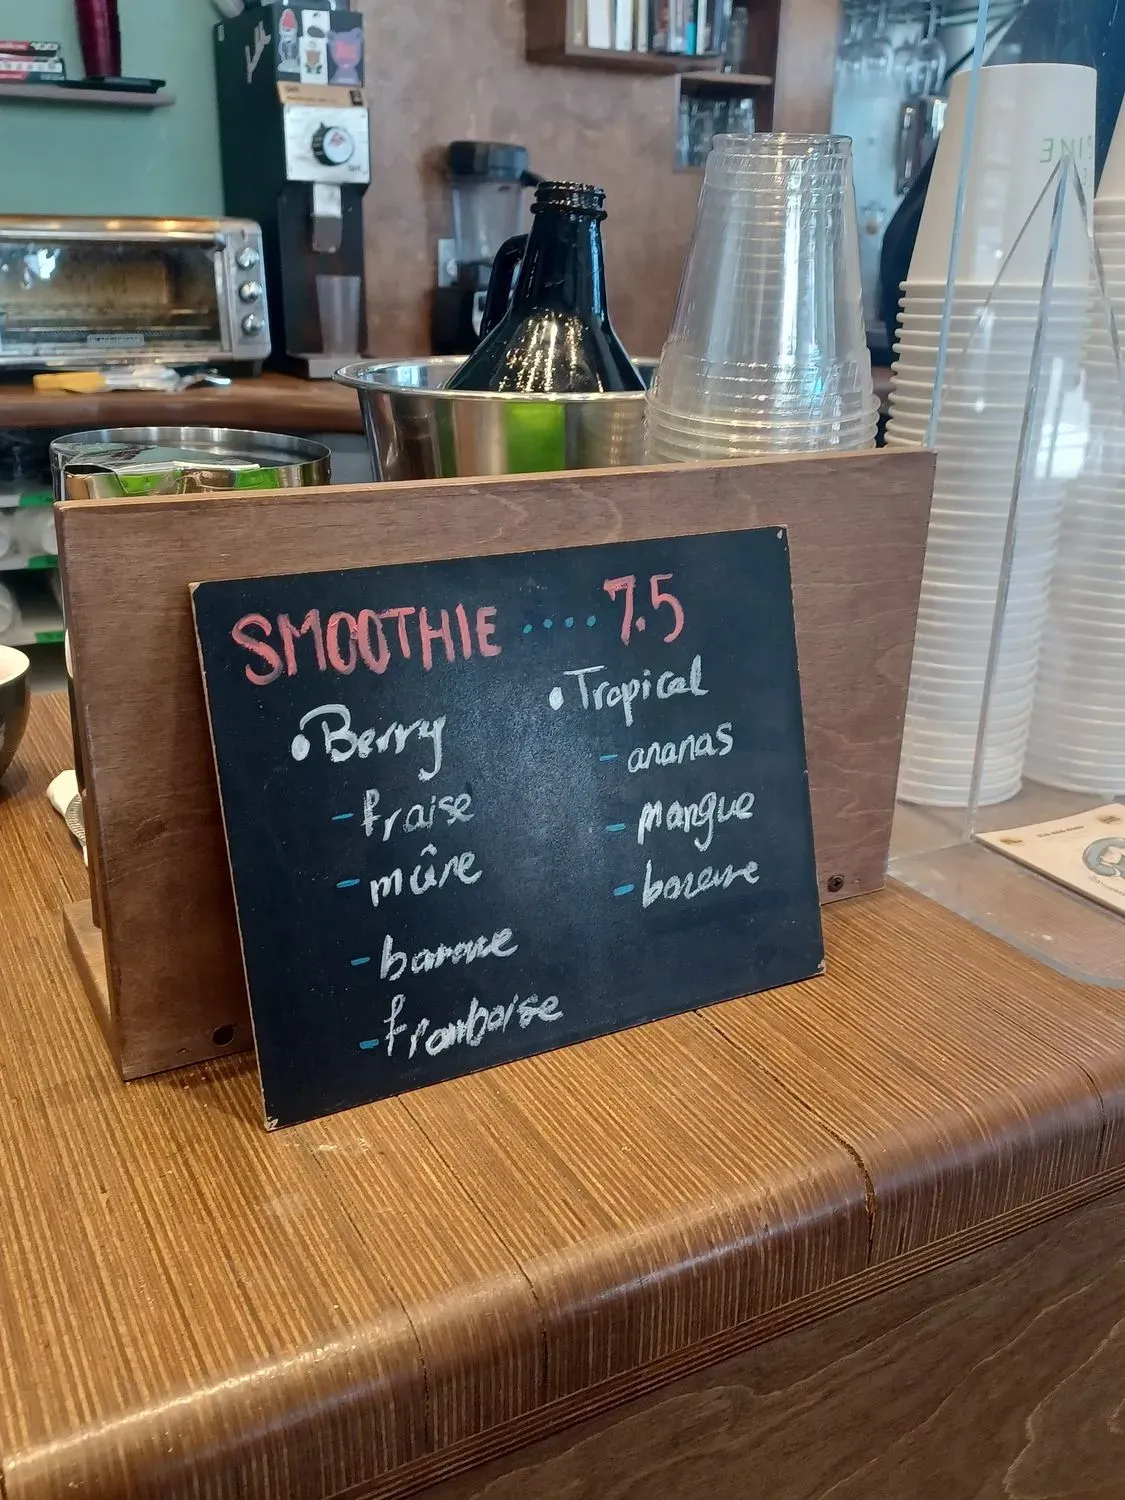 SMOOTHIE .... 7.5
• Berry
- fraise
- mûre
- banane
- framboise
• Tropical
- ananas
- mangue
- banane